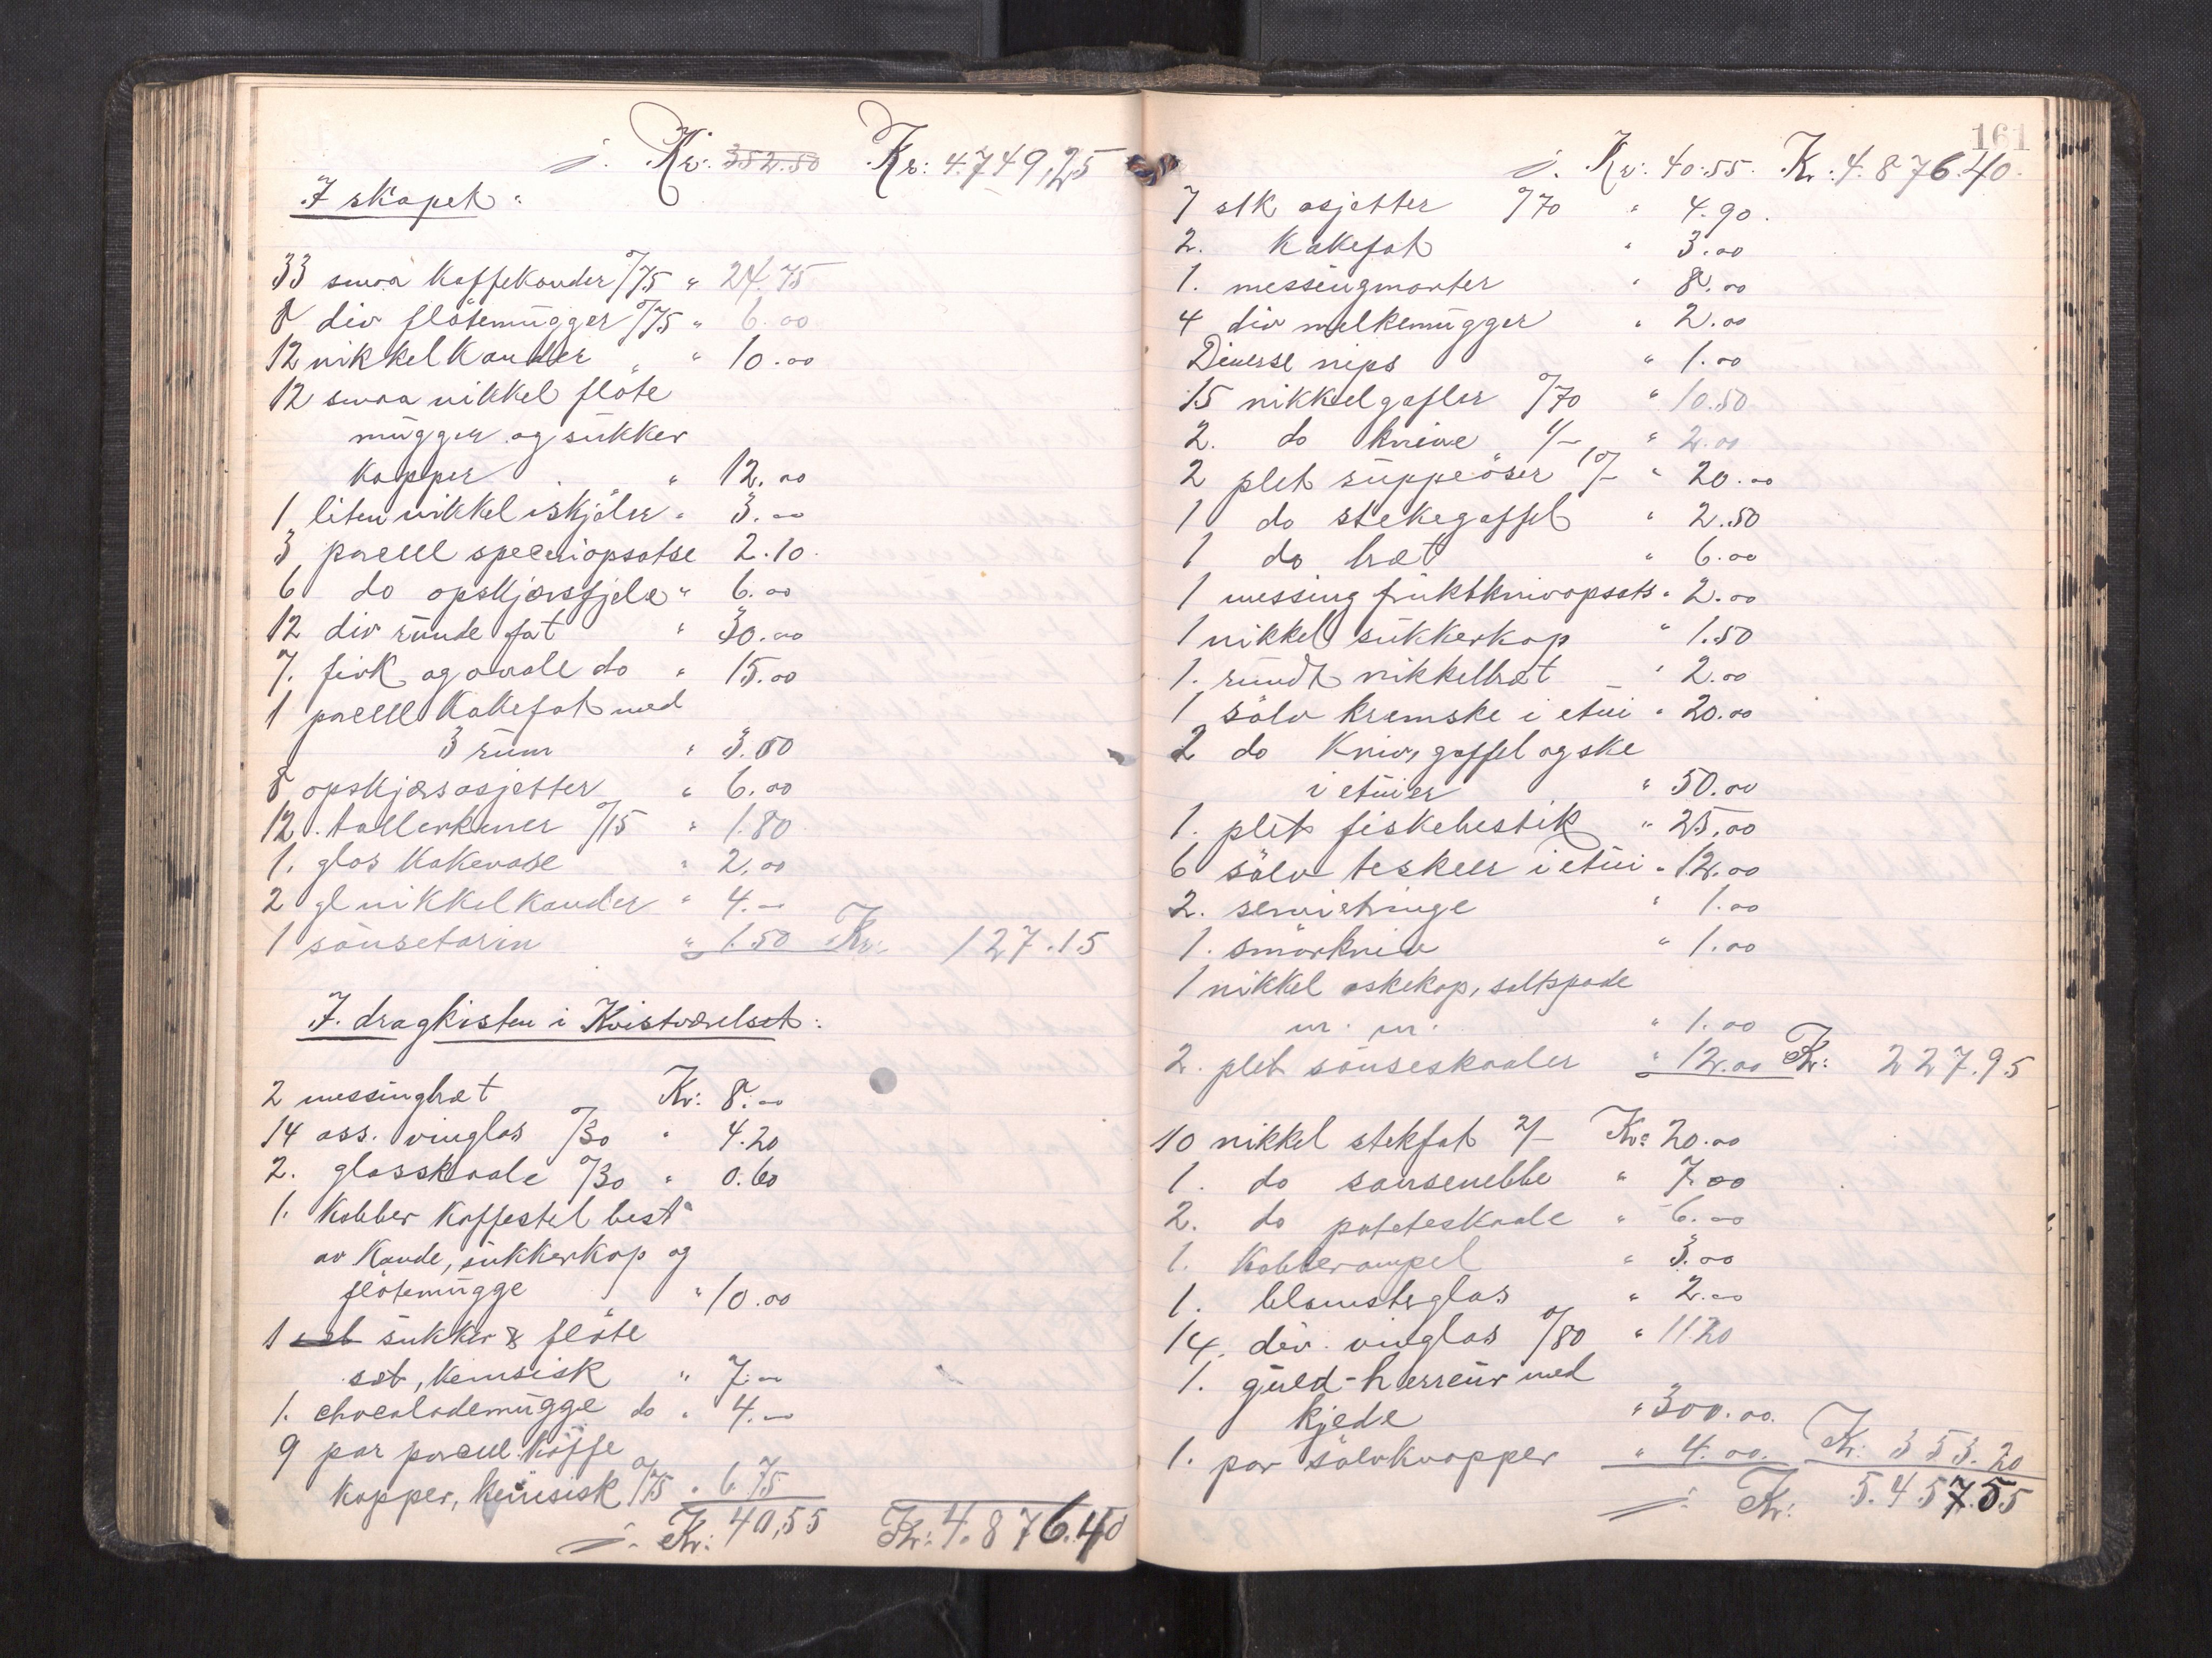 Kr: 352.50 Kr: 4.749,25
I skapet:
33 smaa kaffekander 0/75 " 24.75
8 div flötemugger 0/75 " 6.00
12 nikkelkander " " 10.00
12 smaa nikkel flöte
mugger og sukker
kopper " 12.00
1 liten nikkel iskjöler " 3.00
3 porcell speceriopsatse 2.10
6 do opskjærsfjele " 6.00
12 div runde fat " 30.00
7. firk og ovale do " 15.00
1 porcell kakefat med
3 rum " 3.50
8 opskjærsasjetter " 6.00
12. tallerkener 0/15 " 1.80
1. glas kakevase " 2.00
2 gl nikkelkander " 4.00
1 sausetarin " 1.50 Kr: 127.15
I dragkisten i Kvistværelset:
2 messingbræt Kr: 8.00
14 ass. vinglas 0/30 " 4.20
2. glasskaale 0/30 " 0.60
1. Kobber kaffestel best
av kande, sukkerkop og
flötemugge " 10.00
1 set sukker & flöte
set, kinesisk " 7.00
1. chocolademugge do " 4.00
9 par porcel. kaffe
kopper, kinesisk 0/75 " 6.75
Kr: 40,55 Kr: 4.876.40
161
Kr: 40.55. Kr: 4.876.40.
7 stk asjetter 0/70 " 4.90.
2. Kakefat " 3.00
1. messingmorter " 8.00
4 div melkemugger " 2.00
Diverse nips " 1.00
15 nikkelgafler 0/70 " 10.50
2. do knive 1/- " 2.00
2 plet suppeöser 10/- " 20.00
1 do stekegaffel " 2.50
1 do bræt " 6.00
1 messing fruktknivopsats " 2.00
1 nikkel sukkerkop " 1.50
1. rundt nikkelbræt " 2.00
1 sölv kremske i etui " 20.00
2 do Kniv, gaffel og ske
i etuier " 50.00
1. plet fiskebestik " 25.00
6 sölv teskeer i etui " 12.00
2. servietringe " 1.00
1. smörkniv " 1.00
1 nikkel askekop, saltspade
m. m. " 1.00
2. plet sauseskaaler " 12.00 Kr: 227.95
10 nikkel stekfat 2/- Kr: 20.00
1. do sausenebbe " 7.00
2. do poteteskaale " 6.00
1. Kobberampel " 3.00
1. blomsterglas " 2.00
14. div. vinglas 0/80 " 11.20
1. guld-herreur med
kjede " 300.00.
1. par sölvknapper " 4.00. Kr: 353.20
Kr: 5.457.55